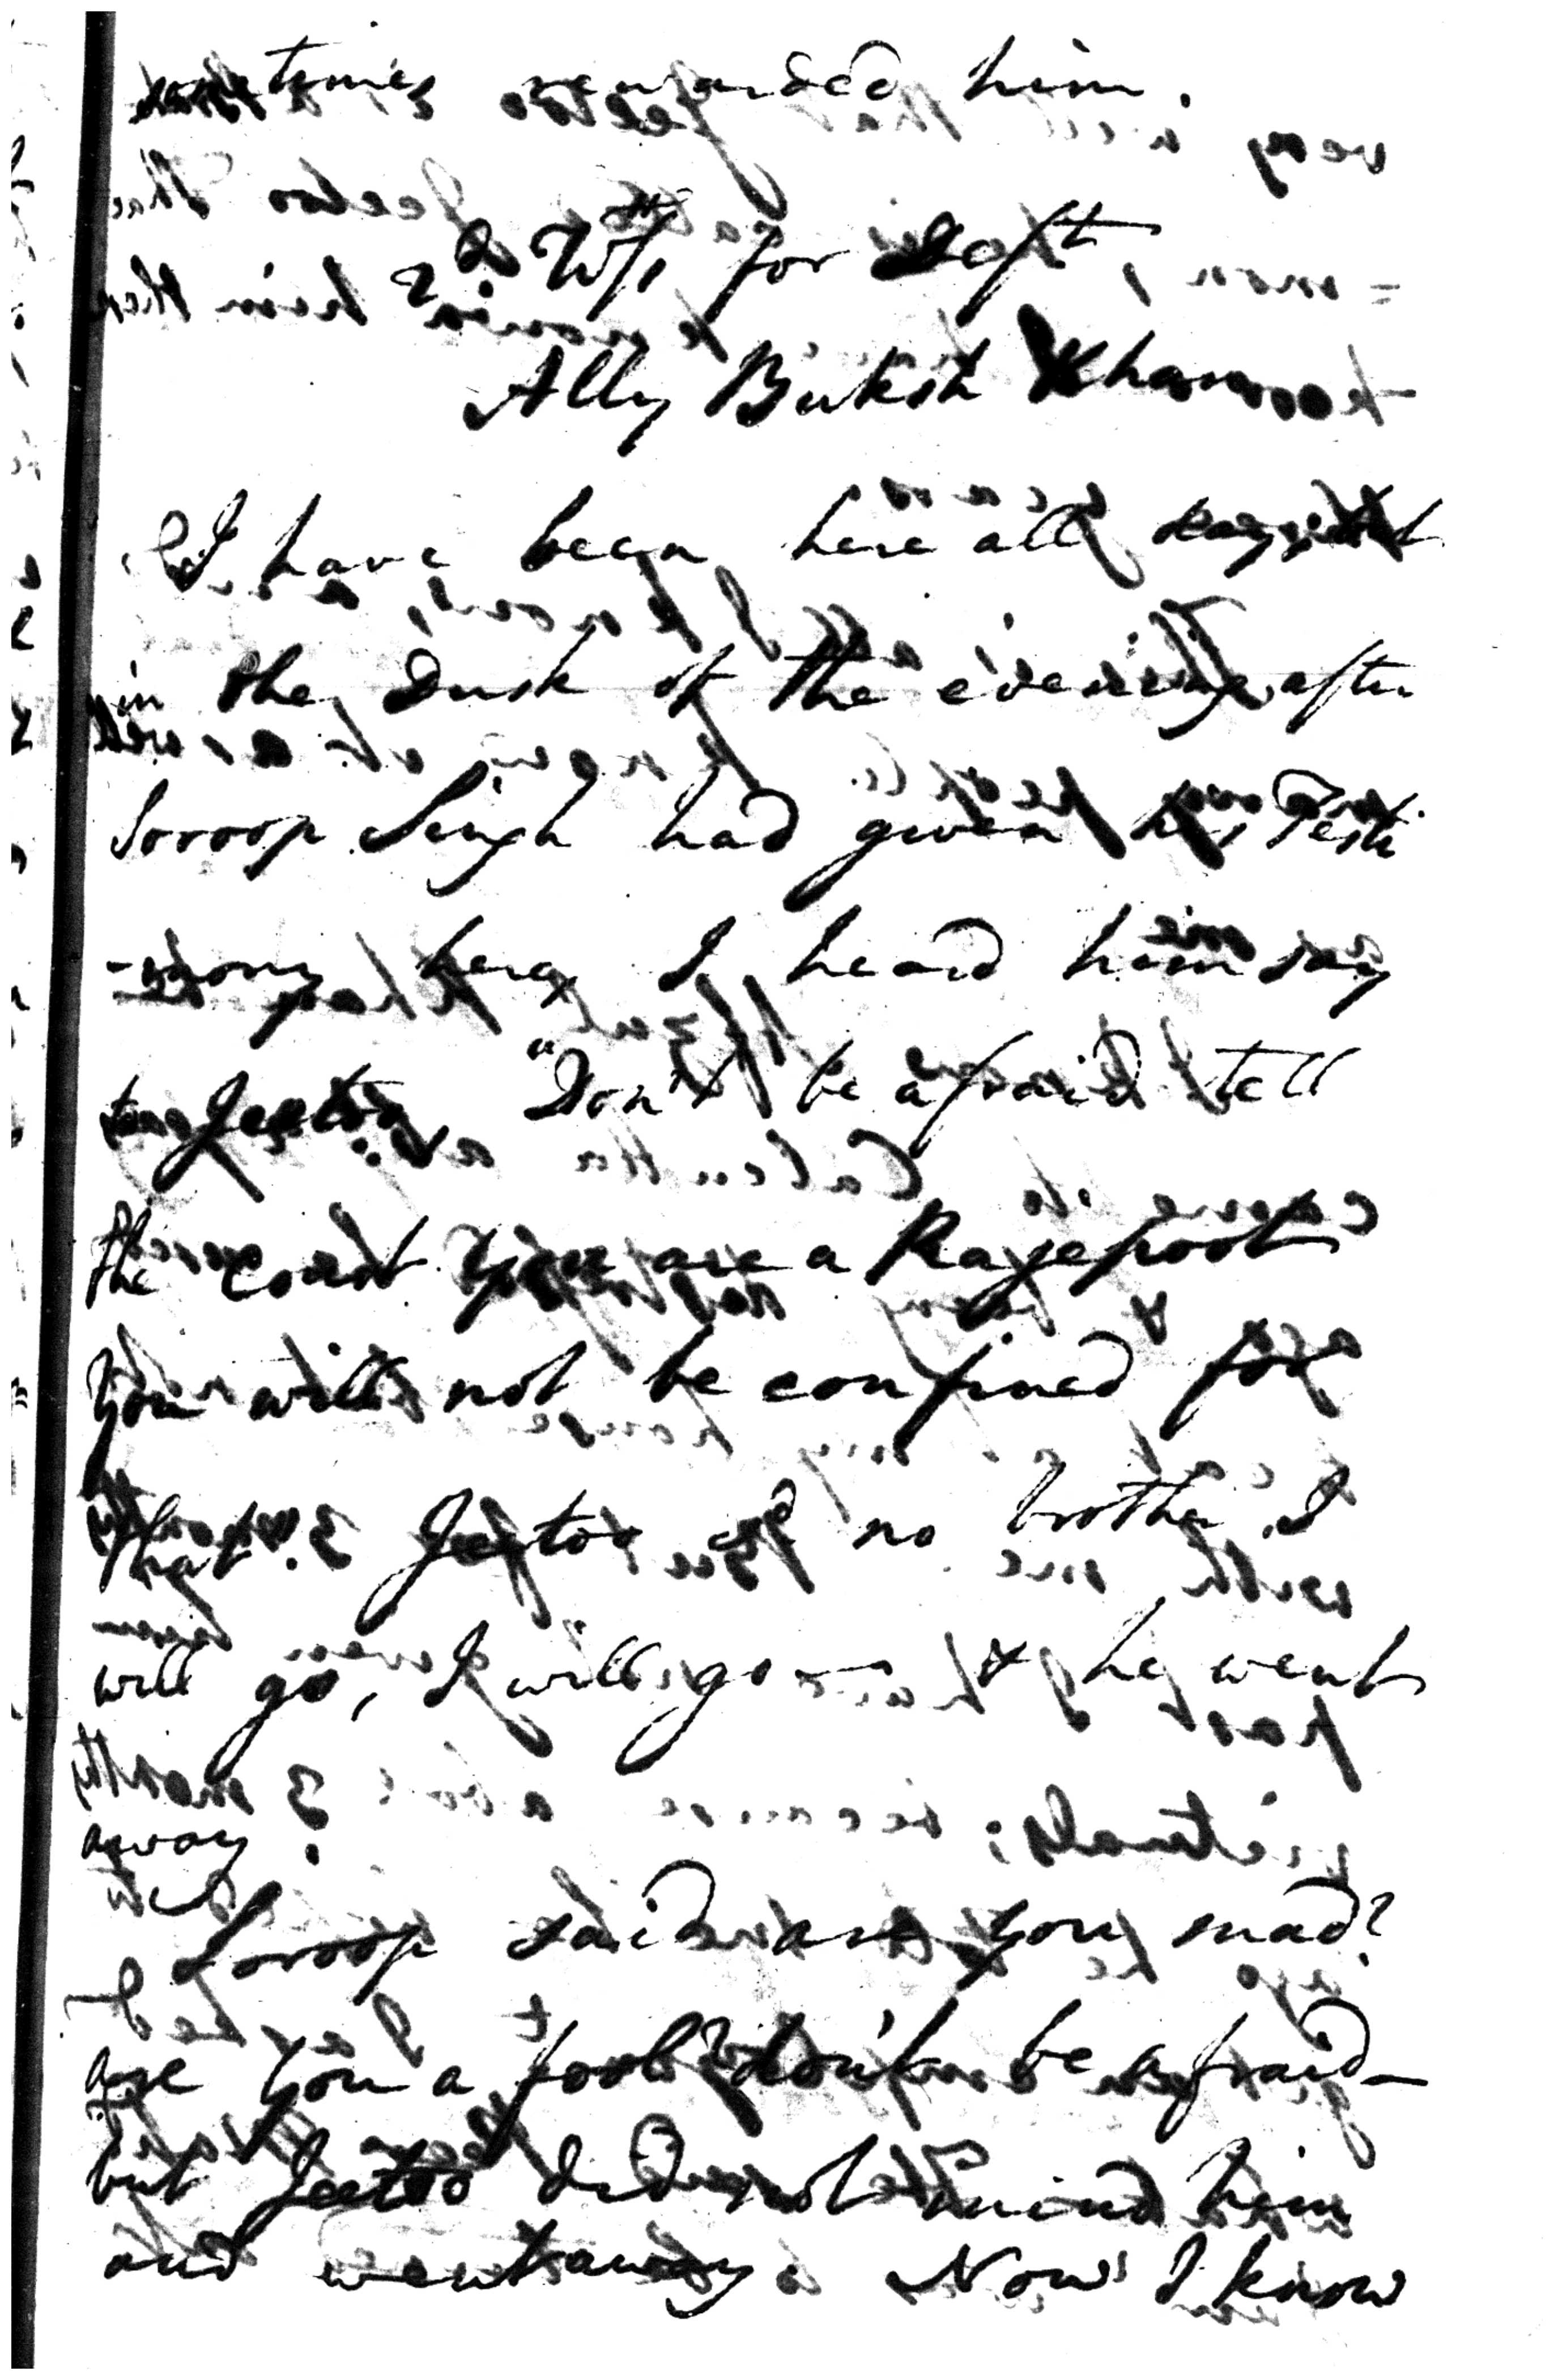 sometimes rewarded him.
2d Wts for Deft
Ally Buksh Khan
I have been here all day
in the Dusk of the evening after
Soroop Singh had given his Testi
-mony here, I heard him say
to Jeetoo, "Don't be afraid tell
the Court you are a Rajepoot
you will not be confined for
that. Jeetoo sd no brother I
will go, I will go — & he went
away.
Soroop said are you mad?
are you a fool? don't be afraid —
but Jeetoo did not mind him
and went away. Now I know